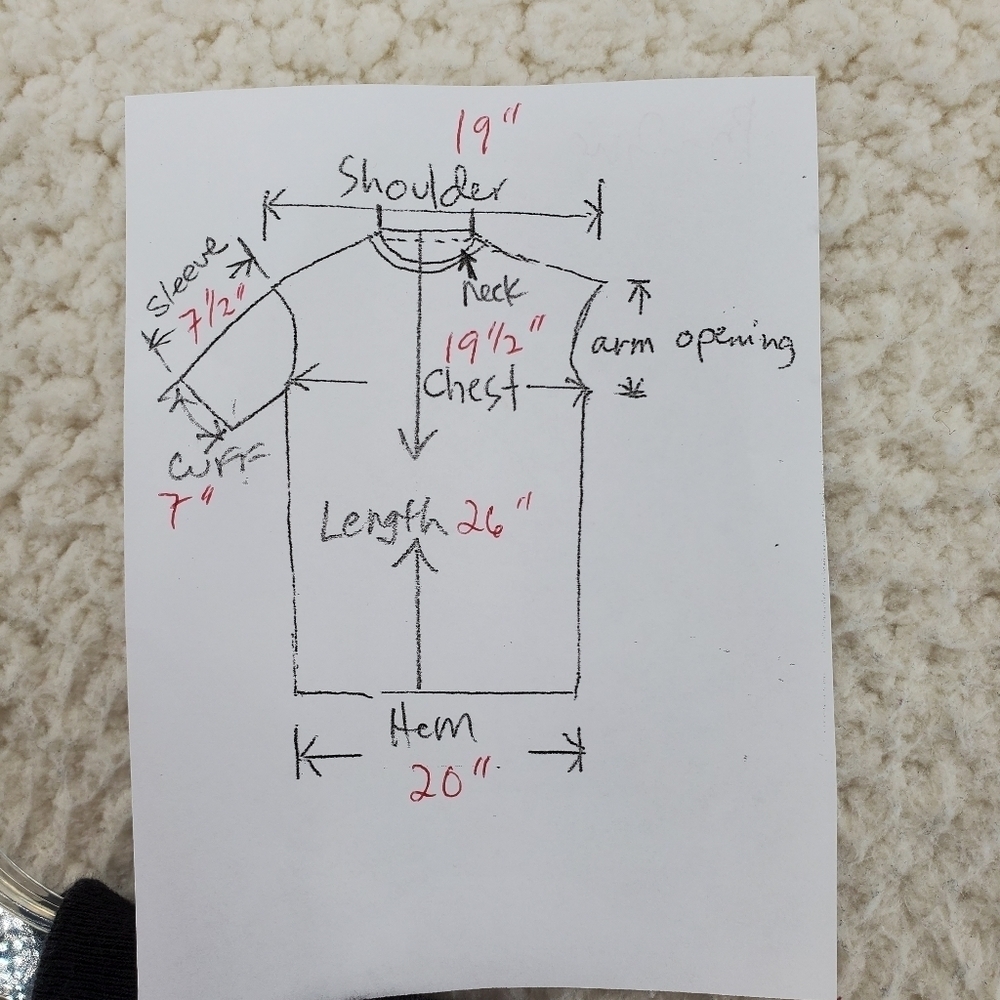 19"
Shoulder
sleeve
7 1/2"
neck
19 1/2"
arm opening
Chest
Cuff
7"
Length 26"
Hem
20"